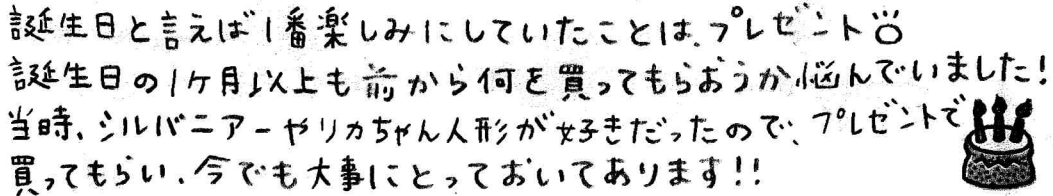 誕生日と言えば1番楽しみにしていたことは、プレゼント
誕生日の1ヶ月以上も前から何を買ってもらおうか悩んでいました!
当時、シルバニアーやリカちゃん人形が好きだったので、プレゼントで
買ってもらい、今でも大事にとっておいてあります!!